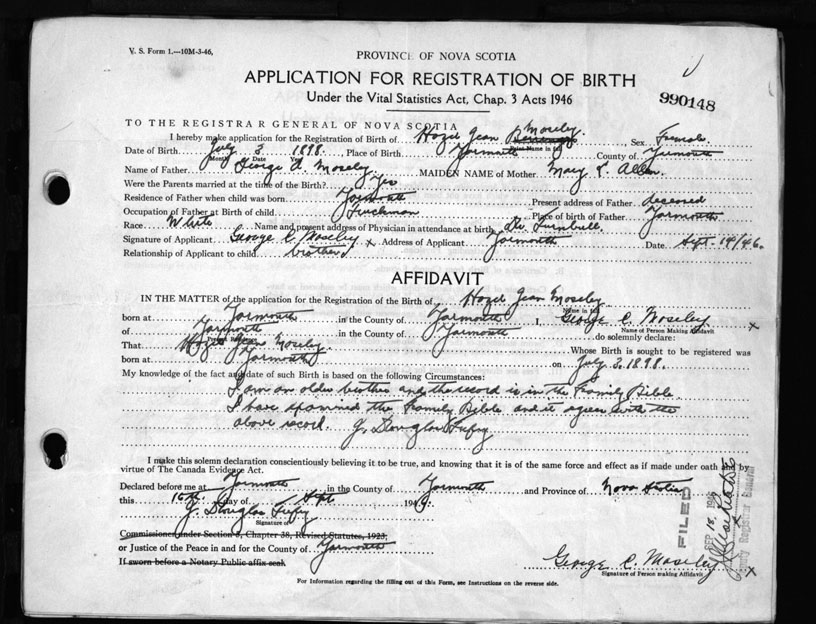 V. S. Form 1.—10M-3-46,
PROVINCE OF NOVA SCOTIA
APPLICATION FOR REGISTRATION OF BIRTH
Under the Vital Statistics Act, Chap. 3 Acts 1946
990148
TO THE REGISTRAR GENERAL OF NOVA SCOTIA
I hereby make application for the Registration of Birth of Hazel Jean Moseley. Sex Female
Print Name in full
Date of Birth July 3. 1898. Place of Birth Yarmouth County of Yarmouth
Month Date Year
Name of Father George A. Moseley. MAIDEN NAME of Mother Mary L. Allen.
Were the Parents married at the time of the Birth? Yes
Residence of Father when child was born Yarmouth Present address of Father deceased
Occupation of Father at Birth of child Truckman Place of birth of Father Yarmouth
Race White Name and present address of Physician in attendance at birth Dr. Turnbull.
Signature of Applicant George C. Moseley x Address of Applicant Yarmouth Date Sept. 14/46.
Relationship of Applicant to child brother
AFFIDAVIT
IN THE MATTER of the application for the Registration of Birth of Hazel Jean Moseley
Name in full
born at Yarmouth in the County of Yarmouth I, George C. Moseley x
Name of Person Making Affidavit
of Yarmouth in the County of Yarmouth do solemnly declare:
That Hazel Jean Moseley Whose Birth is sought to be registered was
born at Yarmouth on July 3, 1898.
My knowledge of the fact and date of such Birth is based on the following Circumstances:
I am an older brother and the record is in the Family Bible.
I have examined the Family Bible and it agrees with the
above record. J. Douglas
I make this solemn declaration conscientiously believing it to be true, and knowing that it is of the same force and effect as if made under oath and by
virtue of The Canada Evidence Act.
Declared before me at Yarmouth in the County of Yarmouth and Province of Nova Scotia
this day of Sept 194
J. Douglas
Signature of
Commissioner under Section 8, Chapter 38, Revised Statutes, 1923,
or Justice of the Peace in and for the County of Yarmouth
If sworn before a Notary Public affix seal
George C. Moseley x
Signature of Person making Affidavit
FILED
SEP 18 1946
Deputy Registrar General
For Information regarding the filling out of this Form, see Instructions on the reverse side.